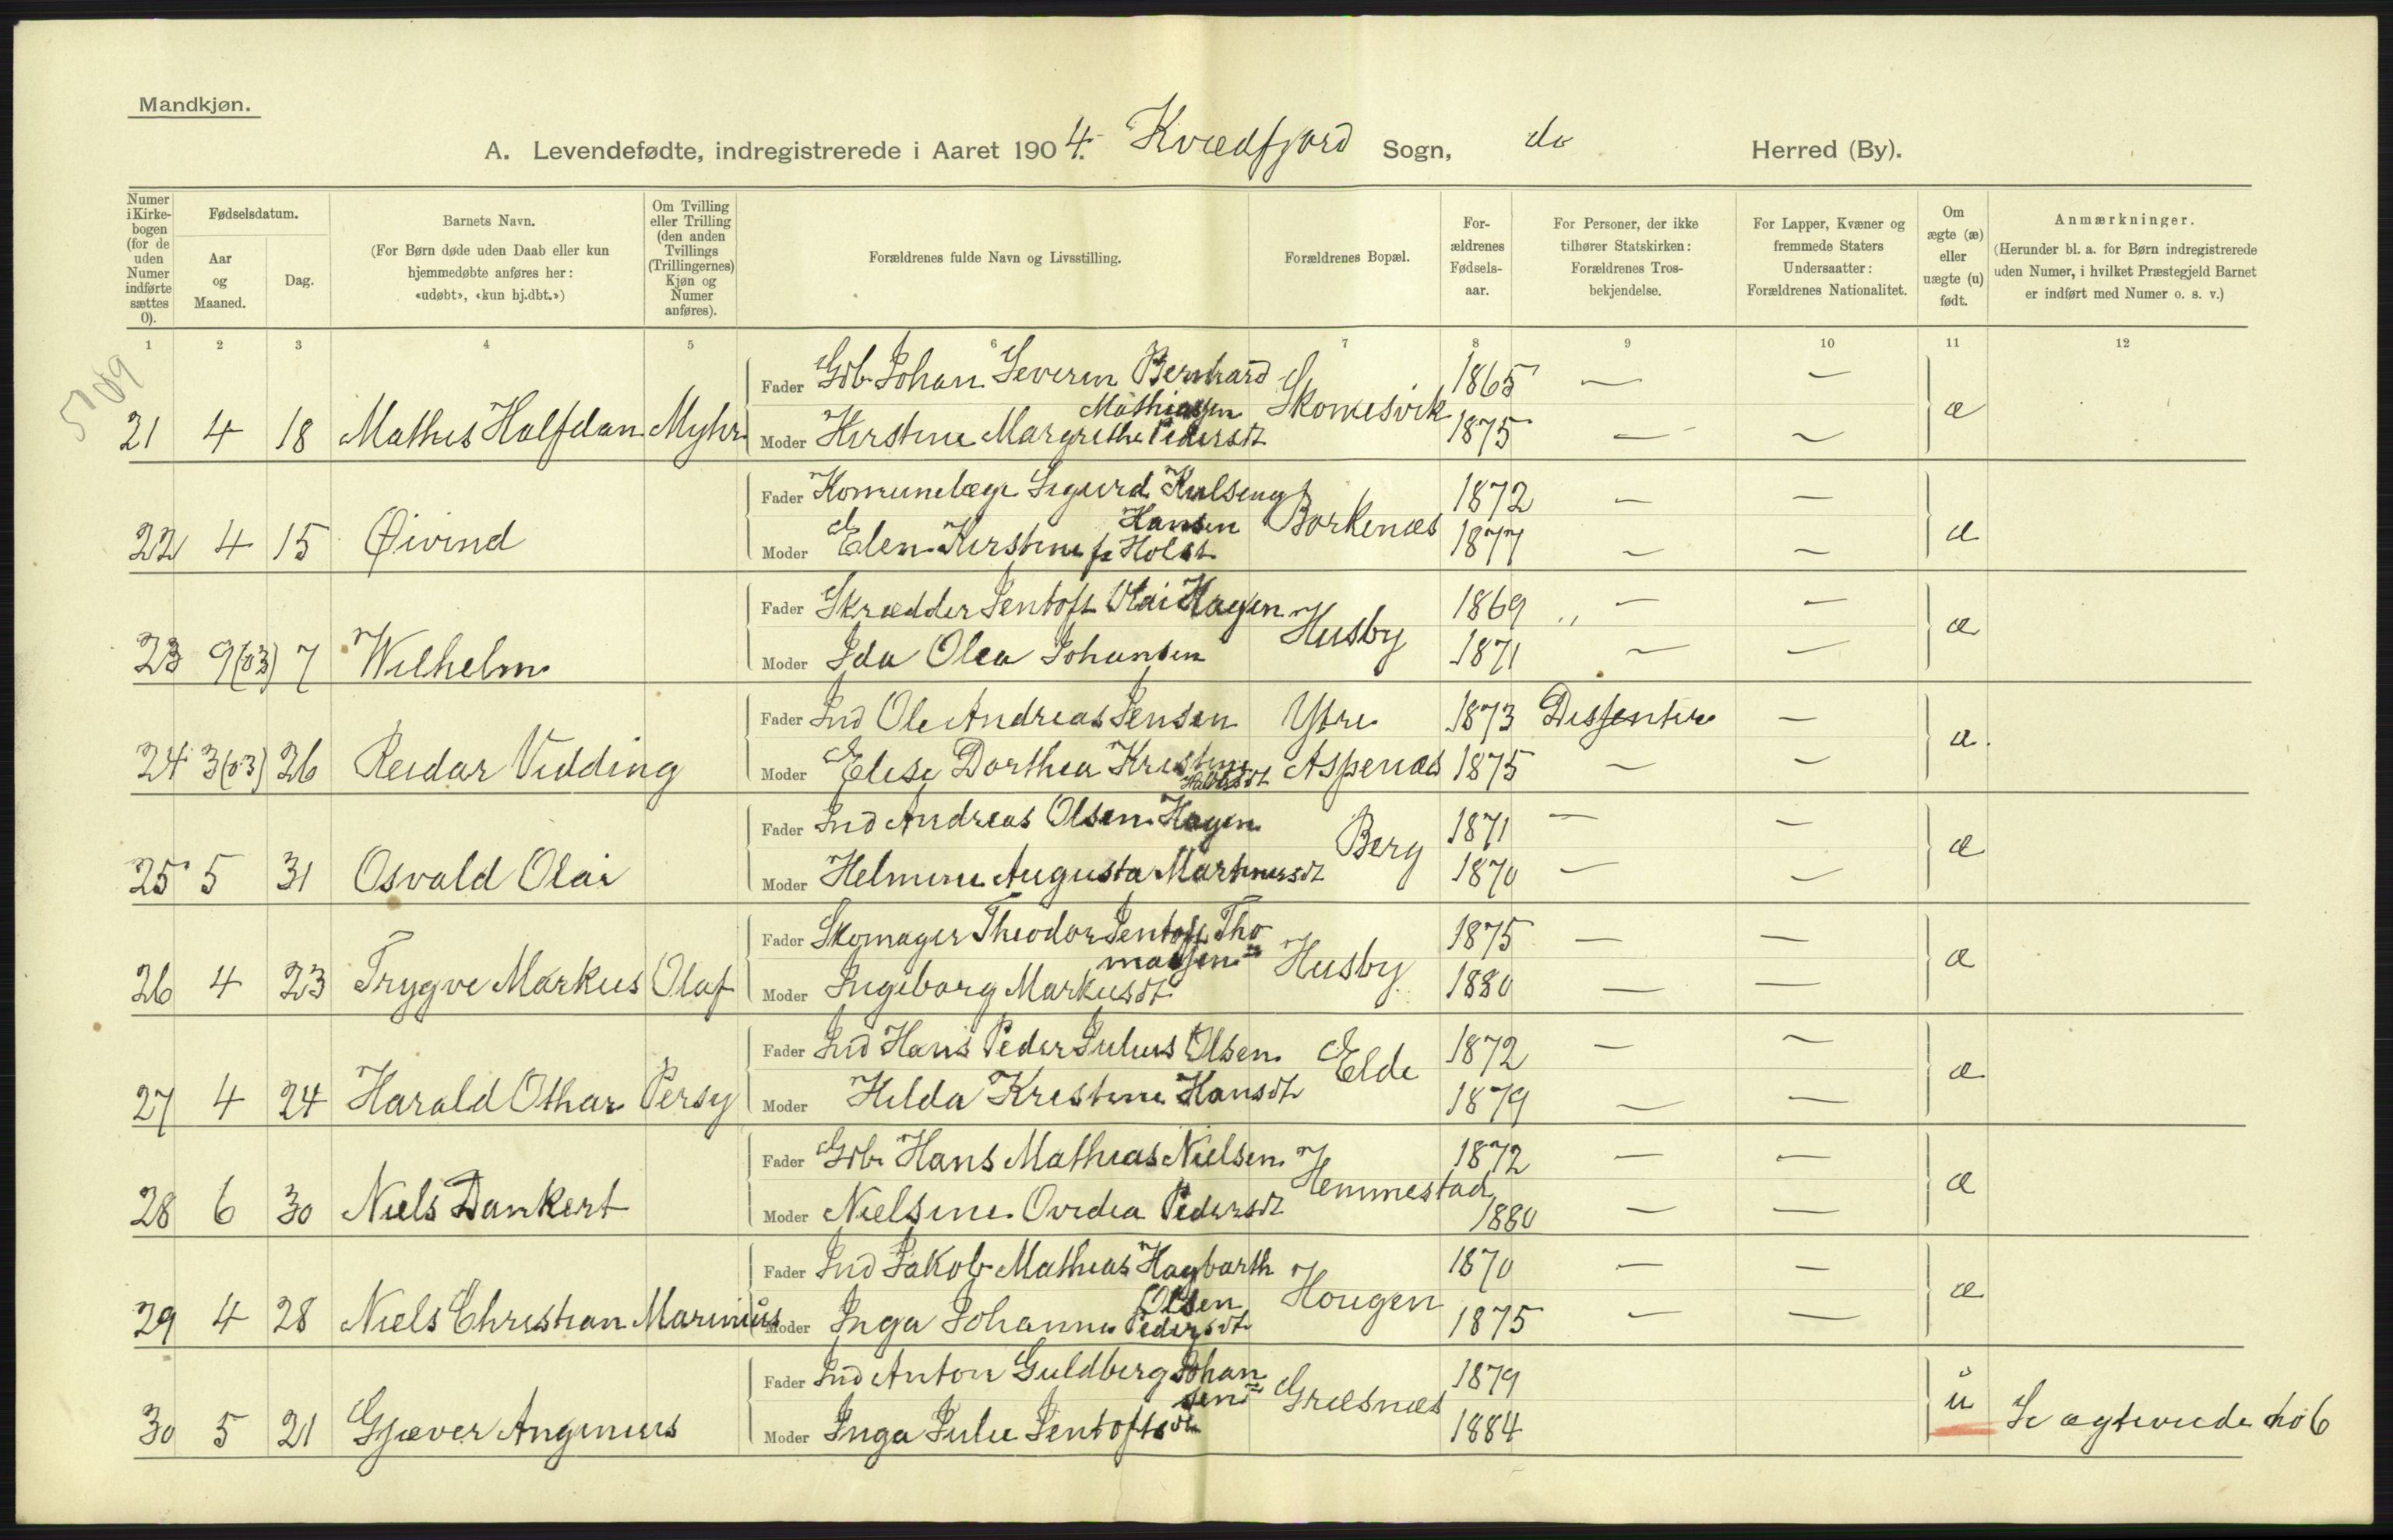 Mandkjøn.
A. Levendefødte, indregistrerede i Aaret 1904. Kvædfjord Sogn, do Herred (By).
Numer i Kirkebogen (for de uden Numer indførte sættes 0).
Fødselsdatum.
Aar og Maaned.
Dag.
Barnets Navn.
(For Børn døde uden Daab eller kun hjemmedøbte anføres her: «udøbt», «kun hj.dbt.»)
Om Tvilling eller Trilling (den anden Tvillings (Trillingernes) Kjøn og Numer anføres).
Forældrenes fulde Navn og Livsstilling.
Forældrenes Bopæl.
Forældrenes Fødselsaar.
For Personer, der ikke tilhører Statskirken: Forældrenes Trosbekjendelse.
For Lapper, Kvæner og fremmede Staters Undersaatter: Forældrenes Nationalitet.
Om ægte (æ) eller uægte (u) født.
Anmærkninger.
(Herunder bl. a. for Børn indregistrerede uden Numer, i hvilket Præstegjeld Barnet er indført med Numer o. s. v.)
1 2 3 4 5 6 7 8 9 10 11 12
Fader Gdb Johan Severin Bernhard 1865 — —
Mathiassen Skomesvik æ
21 4 18 Mathis Halfdan Myhr Moder Kirstine Margrethe Pedersdt 1875 — —
Fader Komunelæge Sigurd Kulseng 1872 — —
Hansen Borkenæs æ
22 4 15 Øivind Moder Elen Kirstine f. Holst 1877 — —
Fader Skrædder Jentoft Olai Hagen 1869 „ — —
Husby æ
23 9(03) 7 Wilhelm Moder Ida Olea Johansen 1871 — —
Fader Ind Ole Andreas Jensen Ytre 1873 Dissenter —
24 3(03) 26 Reidar Vidding Moder Elise Dorthea Kristine Aspenæs 1875 — — æ
Fader Ind Andreas Olsen Hagen 1871 — —
Berg æ
25 5 31 Osvald Olai Moder Helmine Augusta Martinusdt 1870 — —
Fader Skomager Theodor Jentoft Tho 1875 — —
massen Husby æ
26 4 23 Trygve Markus Olaf Moder Ingeborg Markusdt 1880 — —
Fader Ind Hans Peder Julius Olsen 1872 — —
Elde æ
27 4 24 Harald Othar Persy Moder Hilda Kristine Hansdt 1879 — —
Fader Gdb Hans Mathias Nielsen 1872 — —
Hemmestad æ
28 6 30 Niels Dankert Moder Nielsine Ovidia Pedersdt 1880 — —
Fader Ind Jakob Mathias Hagbarth 1870 — —
Olsen Hougen æ
29 4 28 Niels Christian Marinius Moder Inga Johanne Pedersdt 1875 — —
Fader Ind Anton Guldberg Johan 1879
sen Græsnæs u
30 5 21 Gjæver Anginius Moder Inga Julie Jentoftsdt 1884 Se ægteviede no 6